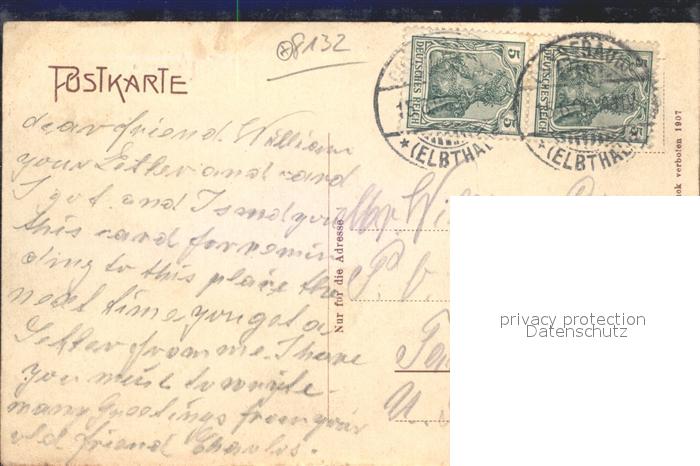 8132
POSTKARTE
5
DEUTSCHES REICH
5
5
DEUTSCHES REICH
5
*(ELBTHAL
*(ELBTHAL
dear friend. William
your Letter and card
I got. and I send you
this card for remin
ding to this place the
next time you get a
Letter from me. I have
you much to wryte
many Greetings from your
old friend Charles.
Nur für die Adresse
Mr. Wil
P.
U.
verboten 1907
privacy protection
Datenschutz